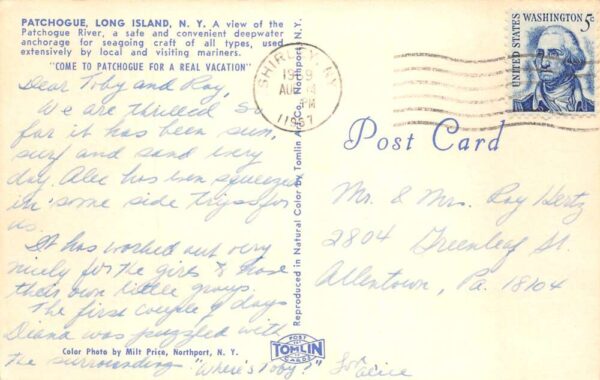 PATCHOGUE, LONG ISLAND, N. Y. A view of the
Patchogue River, a safe and convenient deepwater
anchorage for seagoing craft of all types, used
extensively by local and visiting mariners.
"COME TO PATCHOGUE FOR A REAL VACATION"
Dear Toby and Roy,
We are thrilled. So
far it has been sun,
surf and sand every
day. Alec has even squeezed
in some side trips for
us.
It has worked out very
nicely for the girls & those
their own little group.
The first couple of days
Diana was puzzled with
the surroundings "Where's Toby?"
Love
Alice
Color Photo by Milt Price, Northport, N. Y.
Reproduced in Natural Color by Tomlin Art Co., Northport, N.Y.
POST
TOMLIN
CARDS
SHIRLEY, NY
1969
AUG
PM
11967
UNITED STATES
WASHINGTON 5c
Post Card
Mr. & Mrs. Roy Hertz
2804 Greenleaf St.
Allentown, Pa. 18104